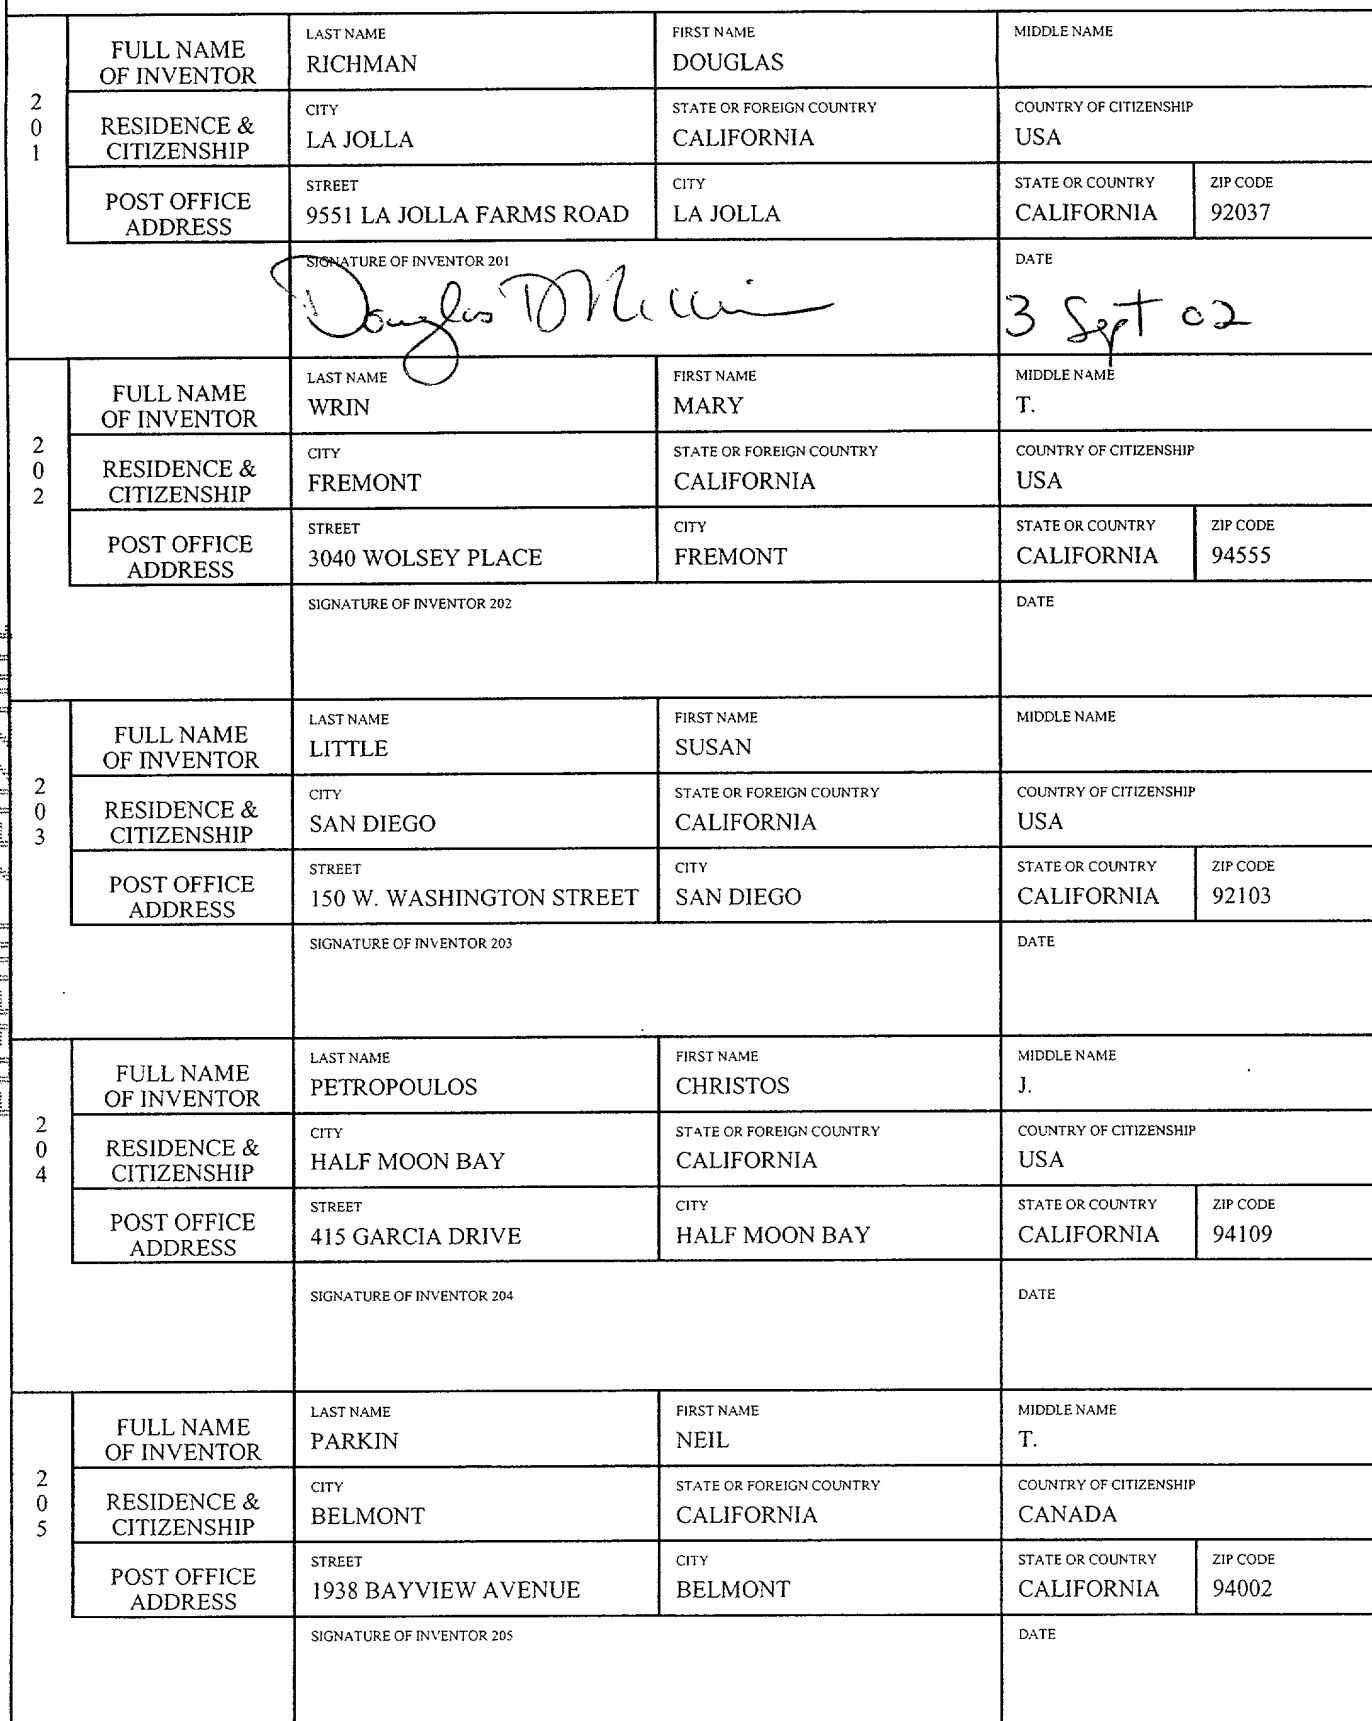 201
FULL NAME OF INVENTOR
LAST NAME
RICHMAN
FIRST NAME
DOUGLAS
MIDDLE NAME
RESIDENCE & CITIZENSHIP
CITY
LA JOLLA
STATE OR FOREIGN COUNTRY
CALIFORNIA
COUNTRY OF CITIZENSHIP
USA
POST OFFICE ADDRESS
STREET
9551 LA JOLLA FARMS ROAD
CITY
LA JOLLA
STATE OR COUNTRY
CALIFORNIA
ZIP CODE
92037
SIGNATURE OF INVENTOR 201
Douglas D
DATE
3 Sept 02
202
FULL NAME OF INVENTOR
LAST NAME
WRIN
FIRST NAME
MARY
MIDDLE NAME
T.
RESIDENCE & CITIZENSHIP
CITY
FREMONT
STATE OR FOREIGN COUNTRY
CALIFORNIA
COUNTRY OF CITIZENSHIP
USA
POST OFFICE ADDRESS
STREET
3040 WOLSEY PLACE
CITY
FREMONT
STATE OR COUNTRY
CALIFORNIA
ZIP CODE
94555
SIGNATURE OF INVENTOR 202
DATE
203
FULL NAME OF INVENTOR
LAST NAME
LITTLE
FIRST NAME
SUSAN
MIDDLE NAME
RESIDENCE & CITIZENSHIP
CITY
SAN DIEGO
STATE OR FOREIGN COUNTRY
CALIFORNIA
COUNTRY OF CITIZENSHIP
USA
POST OFFICE ADDRESS
STREET
150 W. WASHINGTON STREET
CITY
SAN DIEGO
STATE OR COUNTRY
CALIFORNIA
ZIP CODE
92103
SIGNATURE OF INVENTOR 203
DATE
204
FULL NAME OF INVENTOR
LAST NAME
PETROPOULOS
FIRST NAME
CHRISTOS
MIDDLE NAME
J.
RESIDENCE & CITIZENSHIP
CITY
HALF MOON BAY
STATE OR FOREIGN COUNTRY
CALIFORNIA
COUNTRY OF CITIZENSHIP
USA
POST OFFICE ADDRESS
STREET
415 GARCIA DRIVE
CITY
HALF MOON BAY
STATE OR COUNTRY
CALIFORNIA
ZIP CODE
94109
SIGNATURE OF INVENTOR 204
DATE
205
FULL NAME OF INVENTOR
LAST NAME
PARKIN
FIRST NAME
NEIL
MIDDLE NAME
T.
RESIDENCE & CITIZENSHIP
CITY
BELMONT
STATE OR FOREIGN COUNTRY
CALIFORNIA
COUNTRY OF CITIZENSHIP
CANADA
POST OFFICE ADDRESS
STREET
1938 BAYVIEW AVENUE
CITY
BELMONT
STATE OR COUNTRY
CALIFORNIA
ZIP CODE
94002
SIGNATURE OF INVENTOR 205
DATE